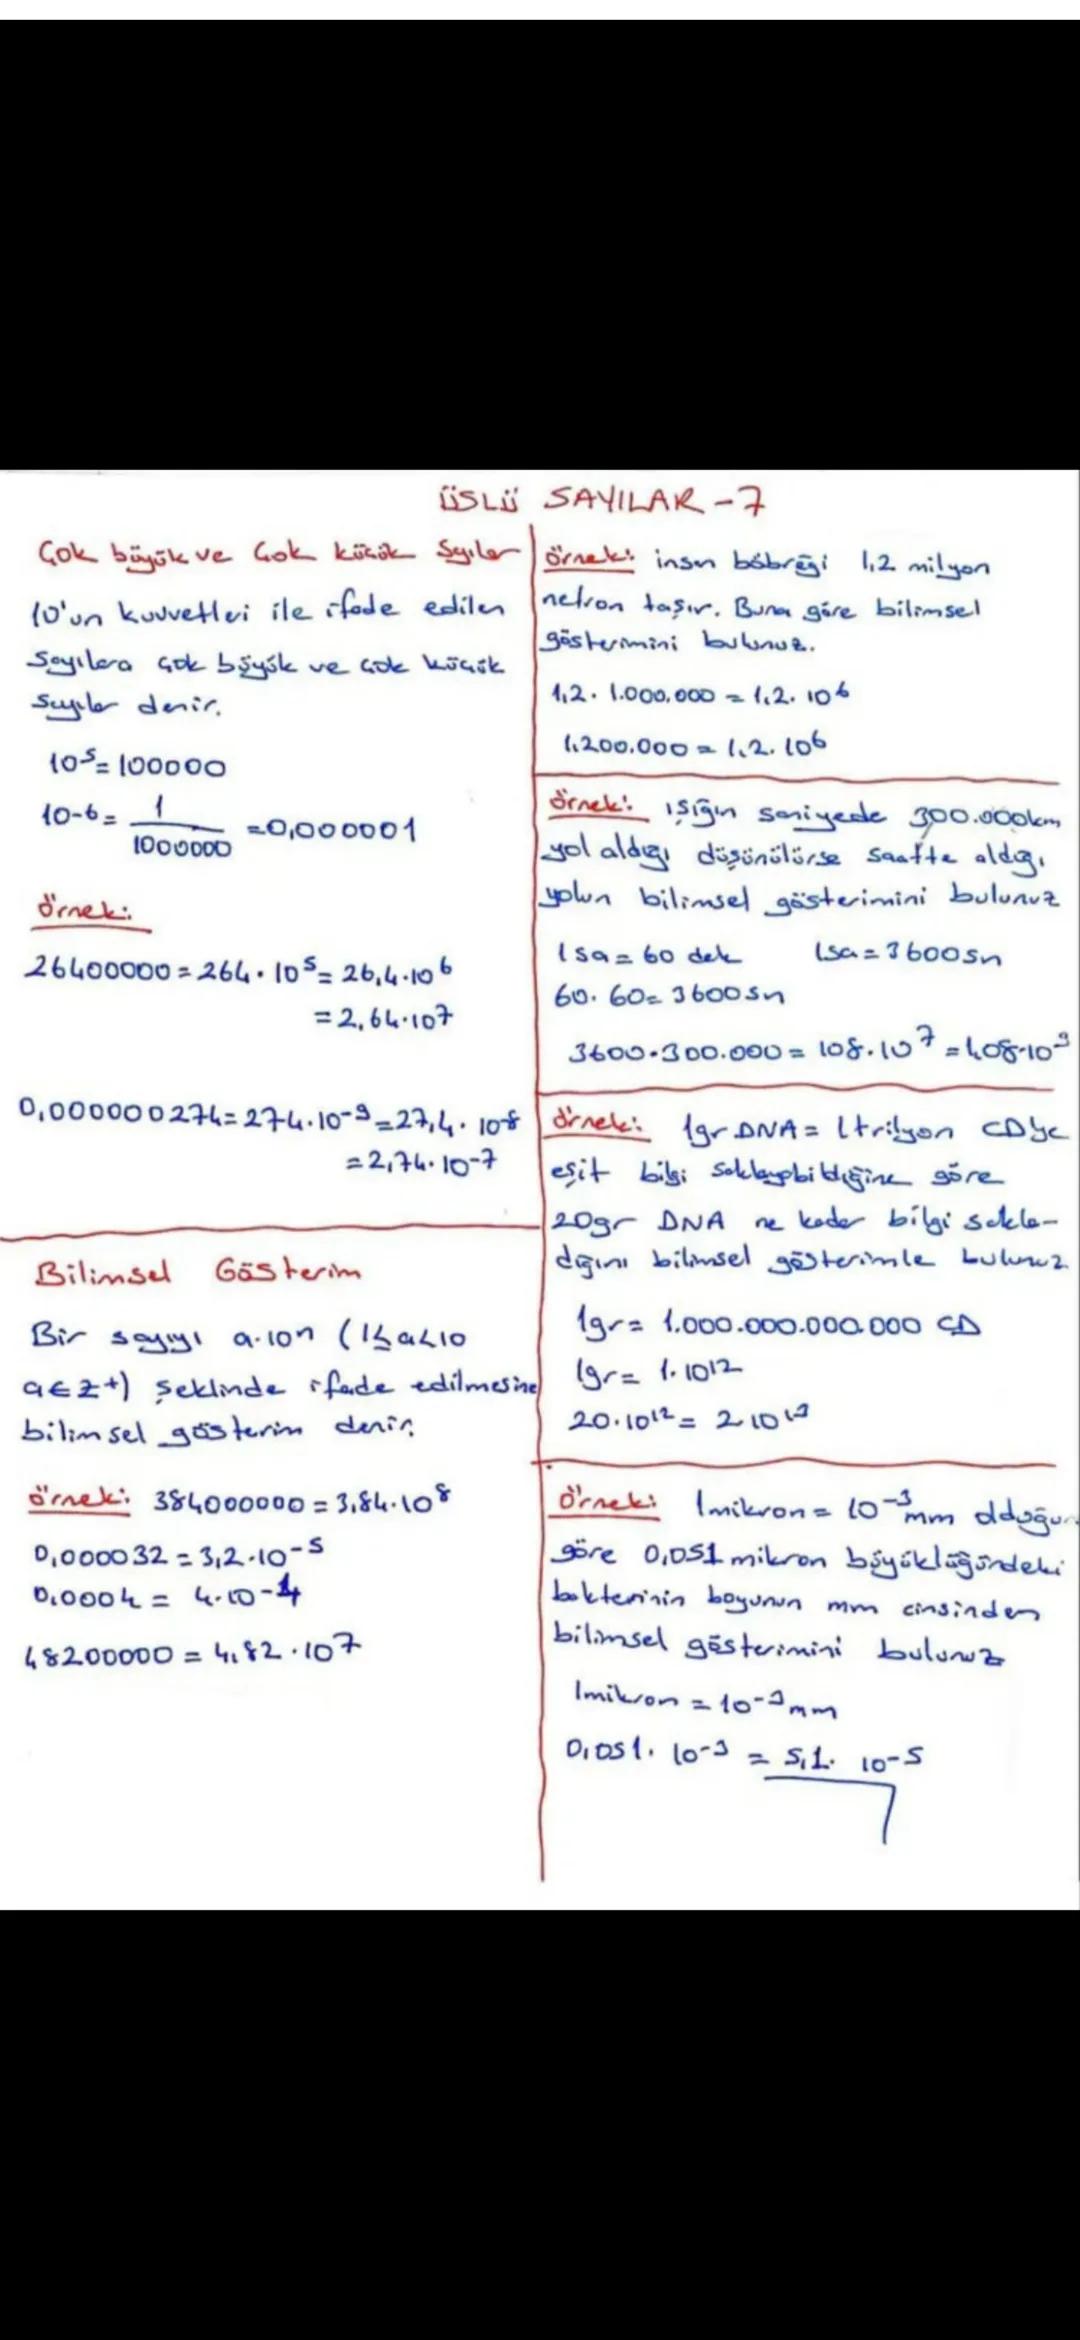 ÜSLÜ SAYILAR - 7
Çok büyük ve Çok küçük Sayılar
10'un kuvvetleri ile ifade edilen
Sayılara çok büyük ve çok küçük
sayılar denir.
10⁵ = 100000
10-⁶ = 1/1000000 = 0,000001
örnek:
26400000 = 264 · 10⁵ = 26,4 · 10⁶
= 2,64 · 10⁷
0,000000274 = 274 · 10⁻⁹ = 27,4 · 10⁻⁸
= 2,74 · 10⁻⁷
Bilimsel Gösterim
Bir sayıyı a·10ⁿ (1≤a<10
a∈Z+) şeklinde ifade edilmesine
bilimsel gösterim denir.
örnek: 384000000 = 3,84·10⁸
0,000032 = 3,2·10⁻⁵
0,0004 = 4·10⁻⁴
48200000 = 4,82·10⁷
örnek: insan böbreği 1,2 milyon
nefron taşır. Buna göre bilimsel
gösterimini bulunuz.
1,2 · 1.000.000 = 1,2 · 10⁶
1.200.000 = 1,2 · 10⁶
örnek: ışığın saniyede 300.000km
yol aldığı düşünülürse saatte aldığı
yolun bilimsel gösterimini bulunuz
1 sa = 60 dak 1sa = 3600sn
60 · 60 = 3600sn
3600 · 300.000 = 108·10⁷ = 1,08·10⁹
örnek: 1gr DNA = 1 trilyon CD'ye
eşit bilgi saklayabildiğine göre
20gr DNA ne kadar bilgi sakla-
dığını bilimsel gösterimle bulunuz
1gr = 1.000.000.000.000 CD
1gr = 1·10¹²
20·10¹² = 2·10¹³
örnek: 1mikron = 10⁻³mm olduğun
göre 0,051 mikron büyüklüğündeki
bakterinin boyunun mm cinsinden
bilimsel gösterimini bulunuz
1mikron = 10⁻³mm
0,051 · 10⁻³ = 5,1 · 10⁻⁵